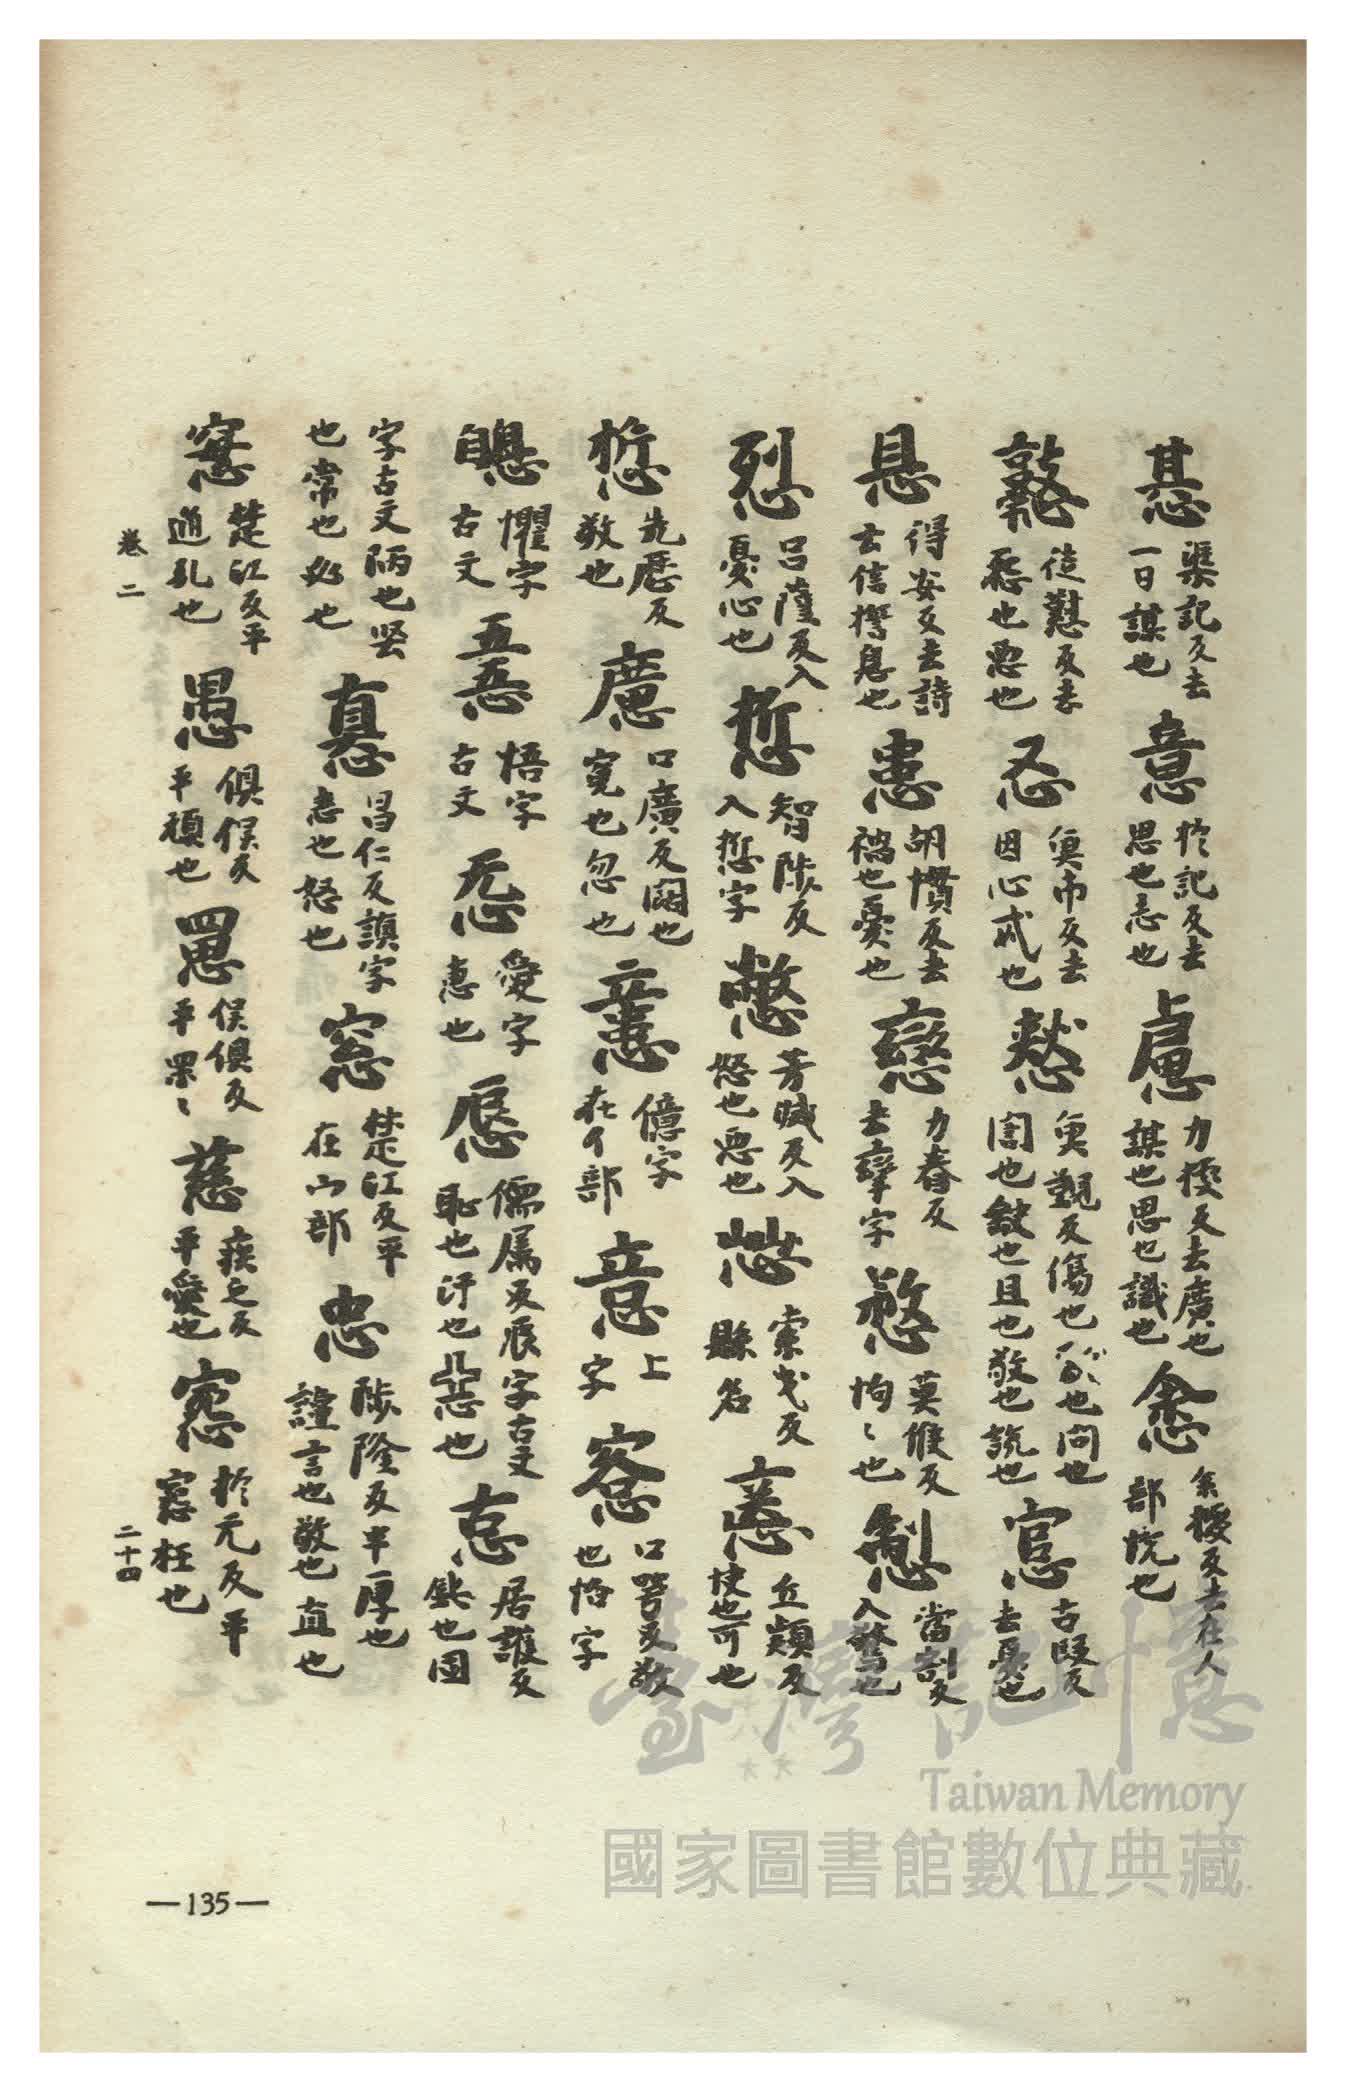 惎渠記反去一日謀也意於記反去思也志也慮力據反去廣也謀也思也識也悆余據反去在人部悅也
憝徒懟反去怨也惡也忍魚巾反去因心弍也憖魚覲反傷也也問也誾也缺也且也敬也說也悹古段反去憂也
悬得安反去詩云信誓悬也患胡慣反去禍也憂也戀力眷反去孿字慜莫惟反怐〻也當割反入驚也
烈呂薩反入憂心也悊智陟反入悊字憋芳蠛反入怒也惡也縣名丘顛反
悊先歷反敬也懬口廣反闊也寬也忽也億字在亻部意上字愙口咢反敬也恪字
懼字古文悟字古文㤅愛字惠也儒属反辰字古文恥也汗也惡也居護反鈌也固
字古文陃也坚也常也必也昌仁反謓字恚也怒也窓楚江反平在山部忠陟隆反平厚也謹言也敬也直也
窻楚江反平通孔也愚俱俣反平頑也俣俱反平慈疾之反平愛也於元反平枉也
卷二
二十四
—135—
臺灣記憶
Taiwan Memory
國家圖書館數位典藏